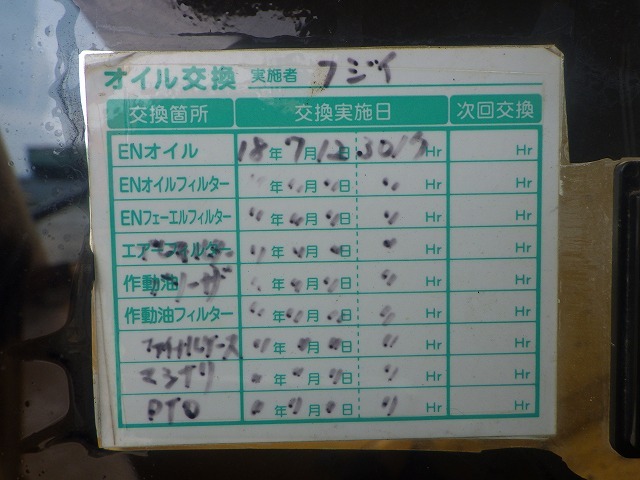 オイル交換 実施者 フジイ
交換箇所 交換実施日 次回交換
ENオイル 18年7月12日 Hr Hr
ENオイルフィルター 〃年〃月〃日 〃Hr Hr
ENフェーエルフィルター 〃年〃月〃日 〃Hr Hr
エアーフィルター 〃年〃月〃日 〃Hr Hr
作動油 年〃月〃日 〃Hr Hr
作動油フィルター 〃年〃月〃日 〃Hr Hr
ファイナルケース 〃年〃月〃日 〃Hr Hr
〃年〃月〃日 〃Hr Hr
PTO 〃年〃月〃日 〃Hr Hr